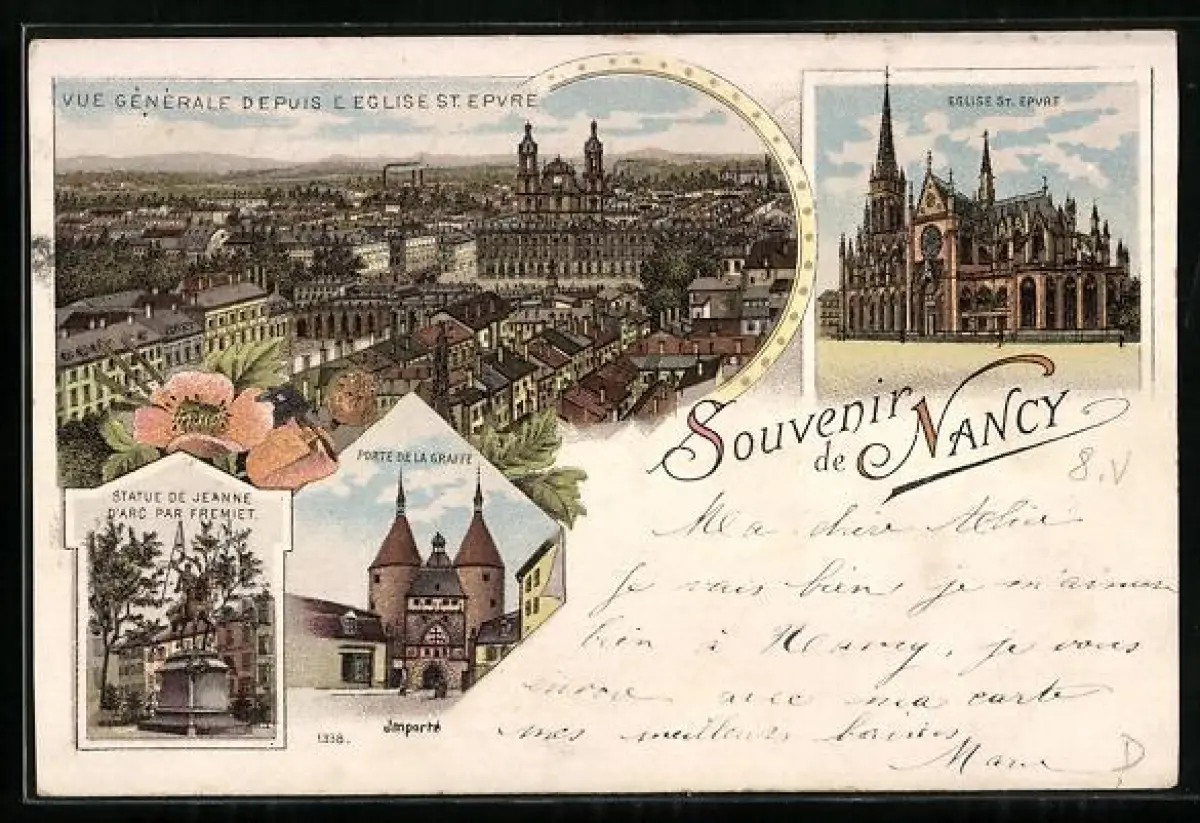 VUE GÉNÉRALE DEPUIS L EGLISE ST. EPVRE
EGLISE ST. EPVRE
Souvenir
de NANCY
8. V
PORTE DE LA GRAFFE
STATUE DE JEANNE
D'ARC PAR FREMIET.
Ma chère
Je vais bien je m'
bien à Nancy, je vous
envoie avec ma carte
mes meilleurs baisers
1338.
Importé
D